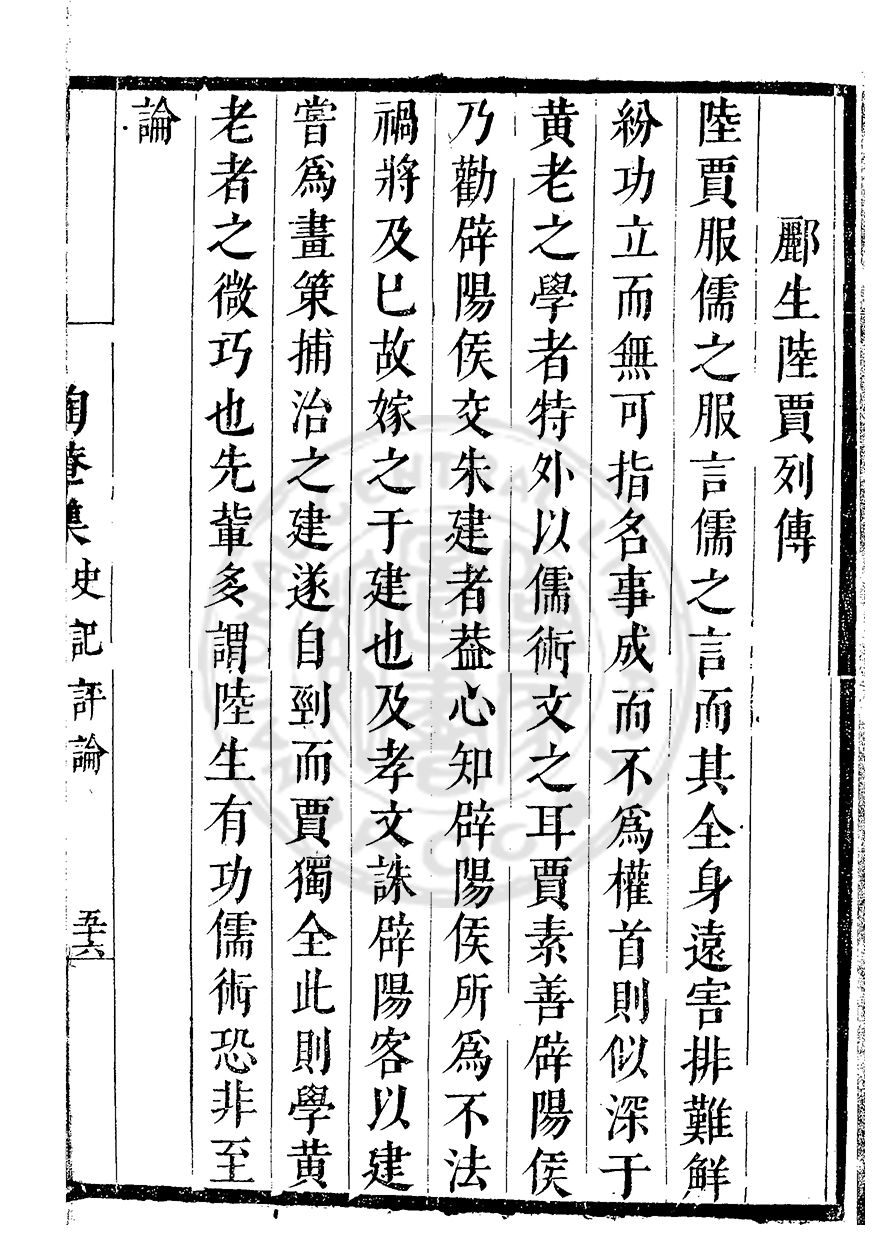 酈生陸賈列傳
陸賈服儒之服言儒之言而其全身遠害排難鮮
紛功立而無可指名事成而不爲權首則似深于
黃老之學者特外以儒術文之耳賈素善辟陽侯
乃勸辟陽侯交朱建者葢心知辟陽侯所爲不法
禍將及巳故嫁之于建也及孝文誅辟陽客以建
嘗爲畫策捕治之建遂自剄而賈獨全此則學黃
老者之微巧也先輩多謂陸生有功儒術恐非至
論
陶菴集 史記評論 五十六